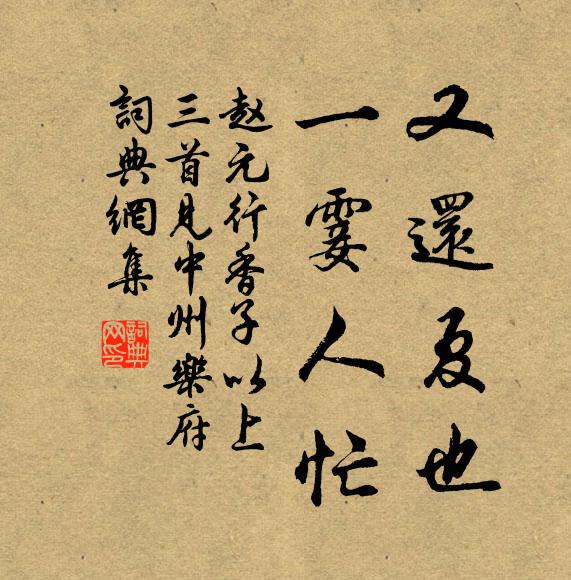 又還夏也
一霎人忙
赵元行香子以上
三首見中州樂府
詞典網集
詞典网印